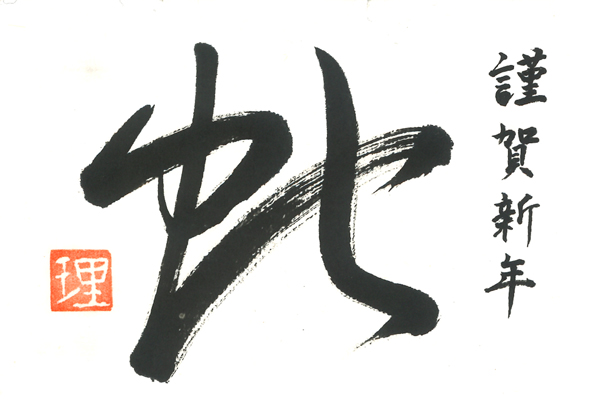 謹賀新年
蛇
理